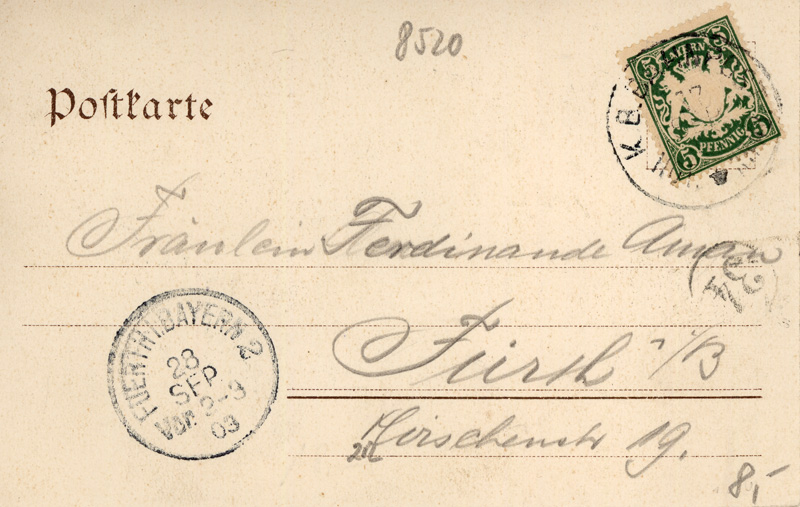 8520
BAYERN
5 5
5 PFENNIG 5
K. B.
Postkarte
Fräulein Ferdinande
Fürth i/B
Hirschenstr 19.
FUERTH I.BAYERN 2
28
SEP
Vor 2-3
03
8,-